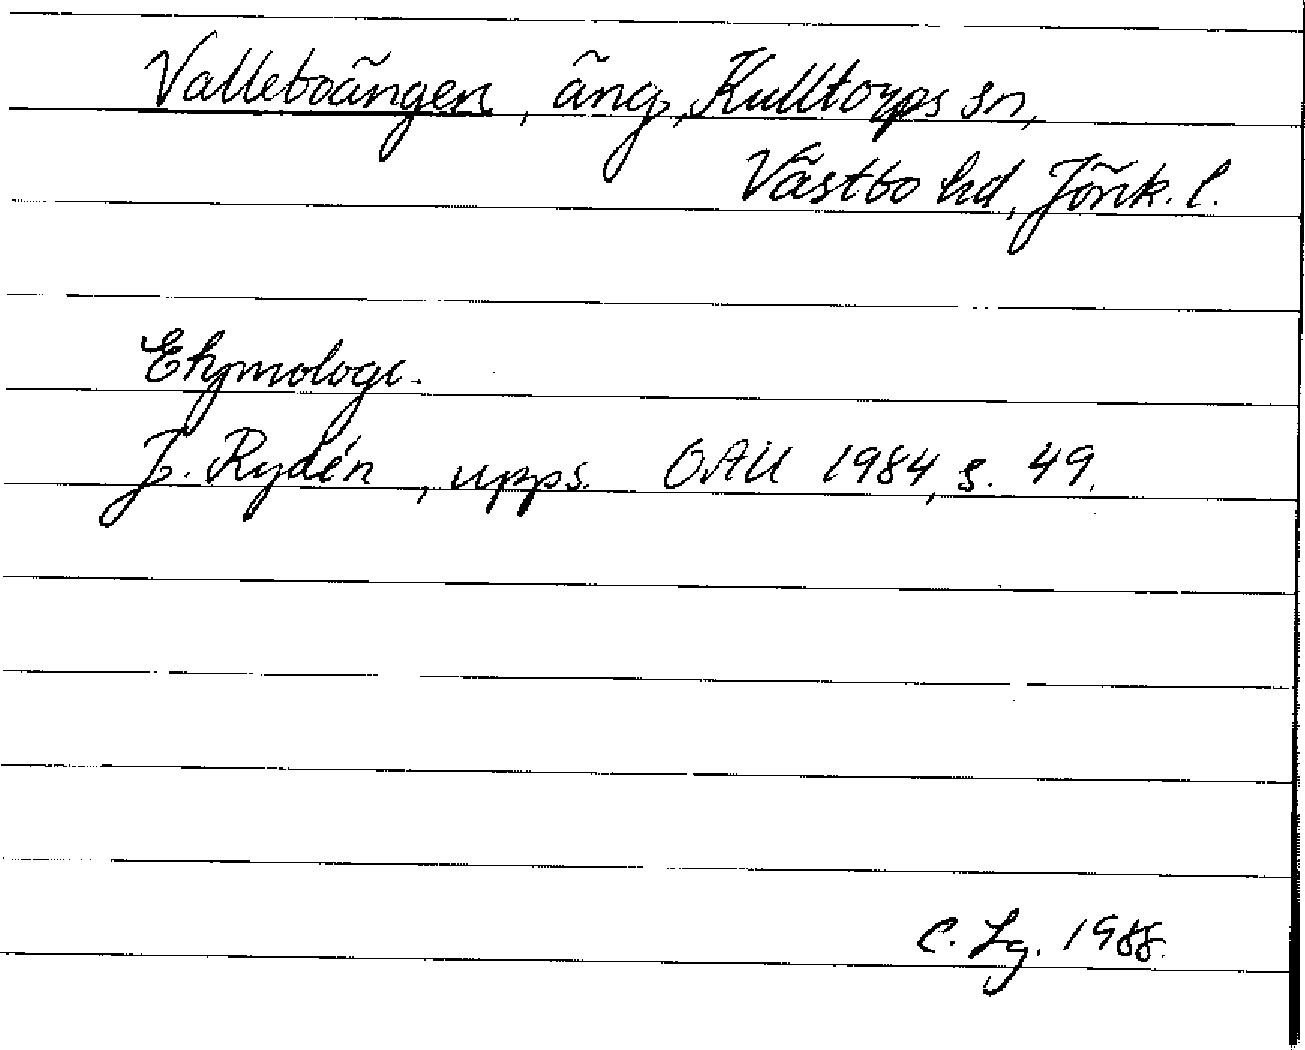 Valleboängen, äng, Kulltorps sn,
Västbo hd, Jönk. l.
Etymologi.
J. Rydén, upps. OAU 1984, s. 49.
C. Lg. 1988.